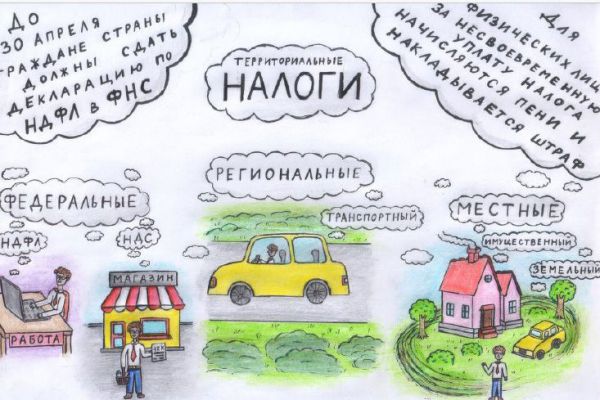 ДО
30 АПРЕЛЯ
ГРАЖДАНЕ СТРАНЫ
ДОЛЖНЫ СДАТЬ
ДЕКЛАРАЦИЮ ПО
НДФЛ В ФНС
ТЕРРИТОРИАЛЬНЫЕ
НАЛОГИ
ДЛЯ
ФИЗИЧЕСКИХ ЛИЦ
ЗА НЕСВОЕВРЕМЕННУЮ
УПЛАТУ НАЛОГА
НАЧИСЛЯЮТСЯ ПЕНИ И
НАКЛАДЫВАЕТСЯ ШТРАФ
ФЕДЕРАЛЬНЫЕ
НДФЛ
НДС
МАГАЗИН
РАБОТА
ЧЕК
РЕГИОНАЛЬНЫЕ
ТРАНСПОРТНЫЙ
МЕСТНЫЕ
ИМУЩЕСТВЕННЫЙ
ЗЕМЕЛЬНЫЙ